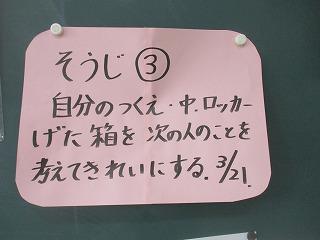 そうじ ③
自分のつくえ・中.ロッカー
げた箱を 次の人のことを
考えてきれいにする. 3/21.